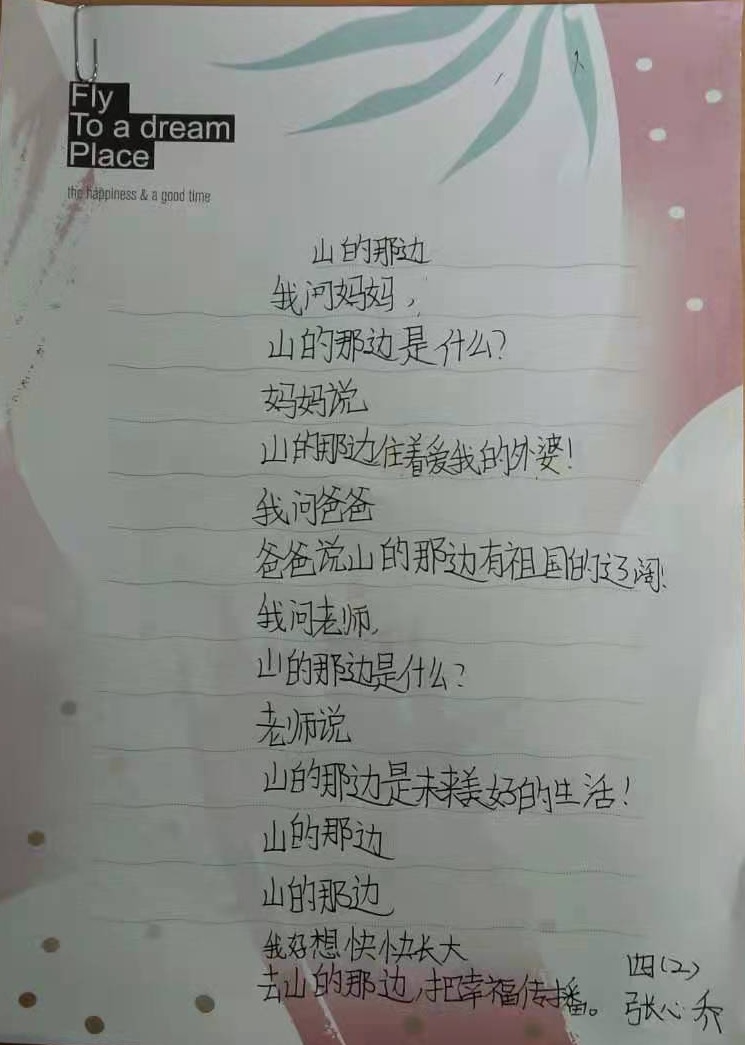 Fly
To a dream
Place
the happiness & a good time
山的那边
我问妈妈，
山的那边是什么？
妈妈说
山的那边住着爱我的外婆！
我问爸爸
爸爸说山的那边有祖国的辽阔！
我问老师，
山的那边是什么？
老师说
山的那边是未来美好的生活！
山的那边
山的那边
我好想快快长大
去山的那边，把幸福传播。
四（2）
张心乔